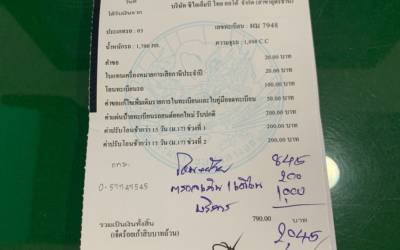 วันที่
ได้รับเงินจาก บริษัท ซีไอเอ็มบี ไทย ออโต้ จำกัด (สาขาอุดรธานี)
ประเภทรถ : 03 เลขทะเบียน : ผม 7948
น้ำหนักรถ : 1,700 กก. ความจุรถ : 1,898 C.C
ค่าขอ 20.00 บาท
ใบแทนเครื่องหมายการเสียภาษีประจำปี 20.00 บาท
โอนทะเบียนรถ 100.00 บาท
ค่าขอแก้ไขเพิ่มเติมรายการในทะเบียนและในคู่มือจดทะเบียน 50.00 บาท
ค่าแผ่นป้ายทะเบียนรถยนต์ออกใหม่ รับปกติ 200.00 บาท
ค่าปรับโอนช้ากว่า 15 วัน (ม.17) ช่วงที่ 1 200.00 บาท
ค่าปรับโอนช้ากว่า 15 วัน (ม.17) ช่วงที่ 2 200.00 บาท
845
200
1,000
บริการ
รวมเป็นเงินทั้งสิ้น 790.00 บาท
(เจ็ดร้อยเก้าสิบบาทถ้วน) 2,045